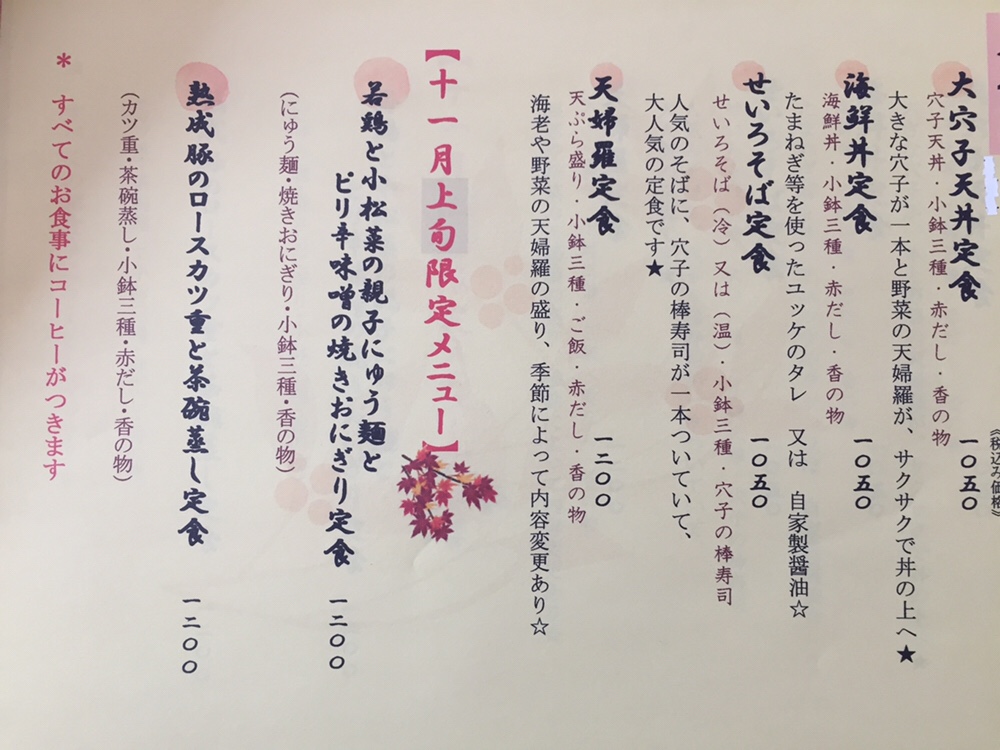 《税込み価格》
大穴子天丼定食 一〇五〇
穴子天丼・小鉢三種・赤だし・香の物
大きな穴子が一本と野菜の天婦羅が、サクサクで丼の上へ★
海鮮丼定食 一〇五〇
海鮮丼・小鉢三種・赤だし・香の物
たまねぎ等を使ったユッケのタレ 又は 自家製醤油☆
せいろそば定食 一〇五〇
せいろそば（冷）又は（温）・小鉢三種・穴子の棒寿司
人気のそばに、穴子の棒寿司が一本ついていて、
大人気の定食です★
天婦羅定食 一二〇〇
天ぷら盛り・小鉢三種・ご飯・赤だし・香の物
海老や野菜の天婦羅の盛り、季節によって内容変更あり☆
【十一月上旬限定メニュー】
若鶏と小松菜の親子にゅう麺と
ピリ辛味噌の焼きおにぎり定食 一二〇〇
（にゅう麺・焼きおにぎり・小鉢三種・香の物）
熟成豚のロースカツ重と茶碗蒸し定食 一二〇〇
（カツ重・茶碗蒸し・小鉢三種・赤だし・香の物）
＊ すべてのお食事にコーヒーがつきます